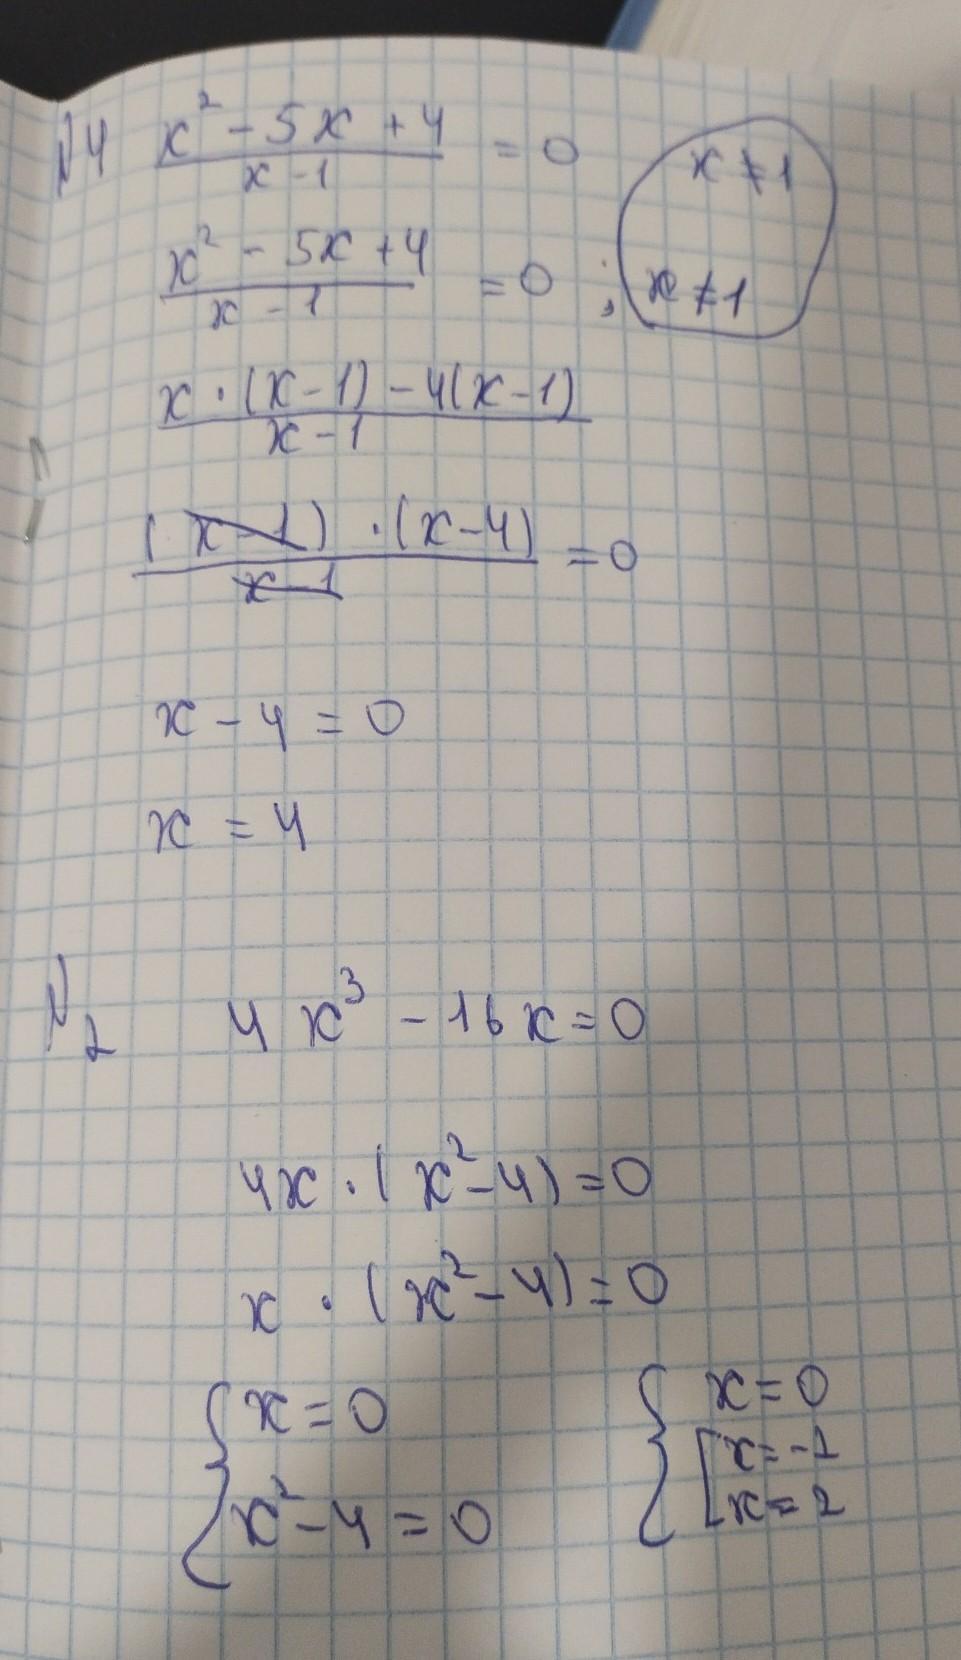 №4 x² - 5x + 4 / x - 1 = 0 x ≠ 1
x² - 5x + 4 / x - 1 = 0 ; x ≠ 1
x · (x - 1) - 4(x - 1) / x - 1
(x - 1) · (x - 4) / x - 1 = 0
x - 4 = 0
x = 4
№2 4x³ - 16x = 0
4x · (x² - 4) = 0
x · (x² - 4) = 0
{ x = 0
x² - 4 = 0
{ x = 0
[ x = -2
x = 2